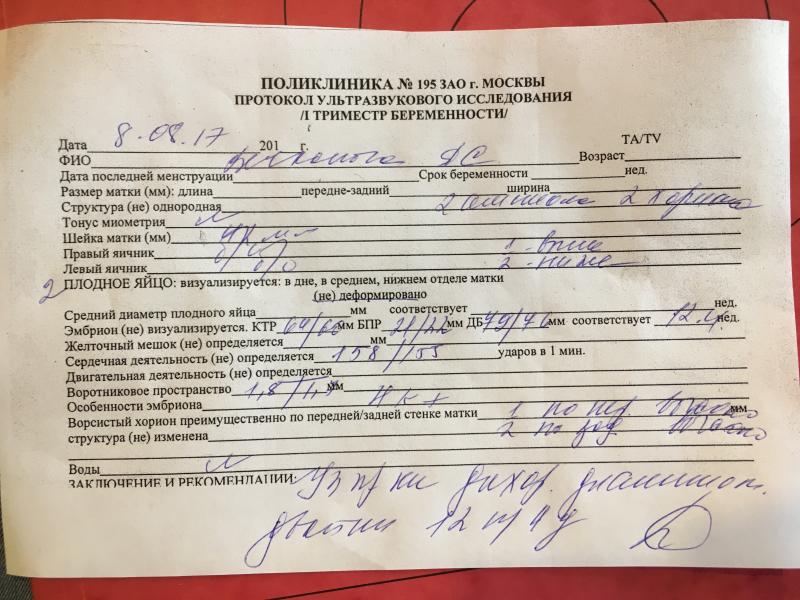 ПОЛИКЛИНИКА № 195 ЗАО г. МОСКВЫ
ПРОТОКОЛ УЛЬТРАЗВУКОВОГО ИССЛЕДОВАНИЯ
/I ТРИМЕСТР БЕРЕМЕННОСТИ/
Дата 8.08.17 201 г. TA/TV
ФИО Возраст
Дата последней менструации Срок беременности нед.
Размер матки (мм): длина передне-задний ширина
Структура (не) однородная 2 амниона 2 хориона
Тонус миометрия N
Шейка матки (мм) 42 мм
Правый яичник б/о 1 - выше
Левый яичник б/о 2 - ниже
2 ПЛОДНОЕ ЯЙЦО: визуализируется: в дне, в среднем, нижнем отделе матки
(не) деформировано
Средний диаметр плодного яйца мм соответствует нед.
Эмбрион (не) визуализируется. КТР мм БПР 21/22 мм ДБ мм соответствует 12.4 нед.
Желточный мешок (не) определяется мм
Сердечная деятельность (не) определяется 158/155 ударов в 1 мин.
Двигательная деятельность (не) определяется
Воротниковое пространство мм
Особенности эмбриона
Ворсистый хорион преимущественно по передней/задней стенке матки 1 по пер. мм
структура (не) изменена 2 по зад.
Воды N
ЗАКЛЮЧЕНИЕ И РЕКОМЕНДАЦИИ: Уз пр-ки дихор. диамниот.
двойни 12 н/4 д